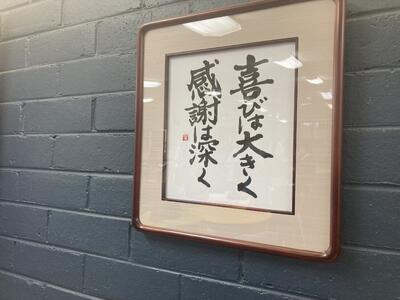 喜びは大きく
感謝は深く